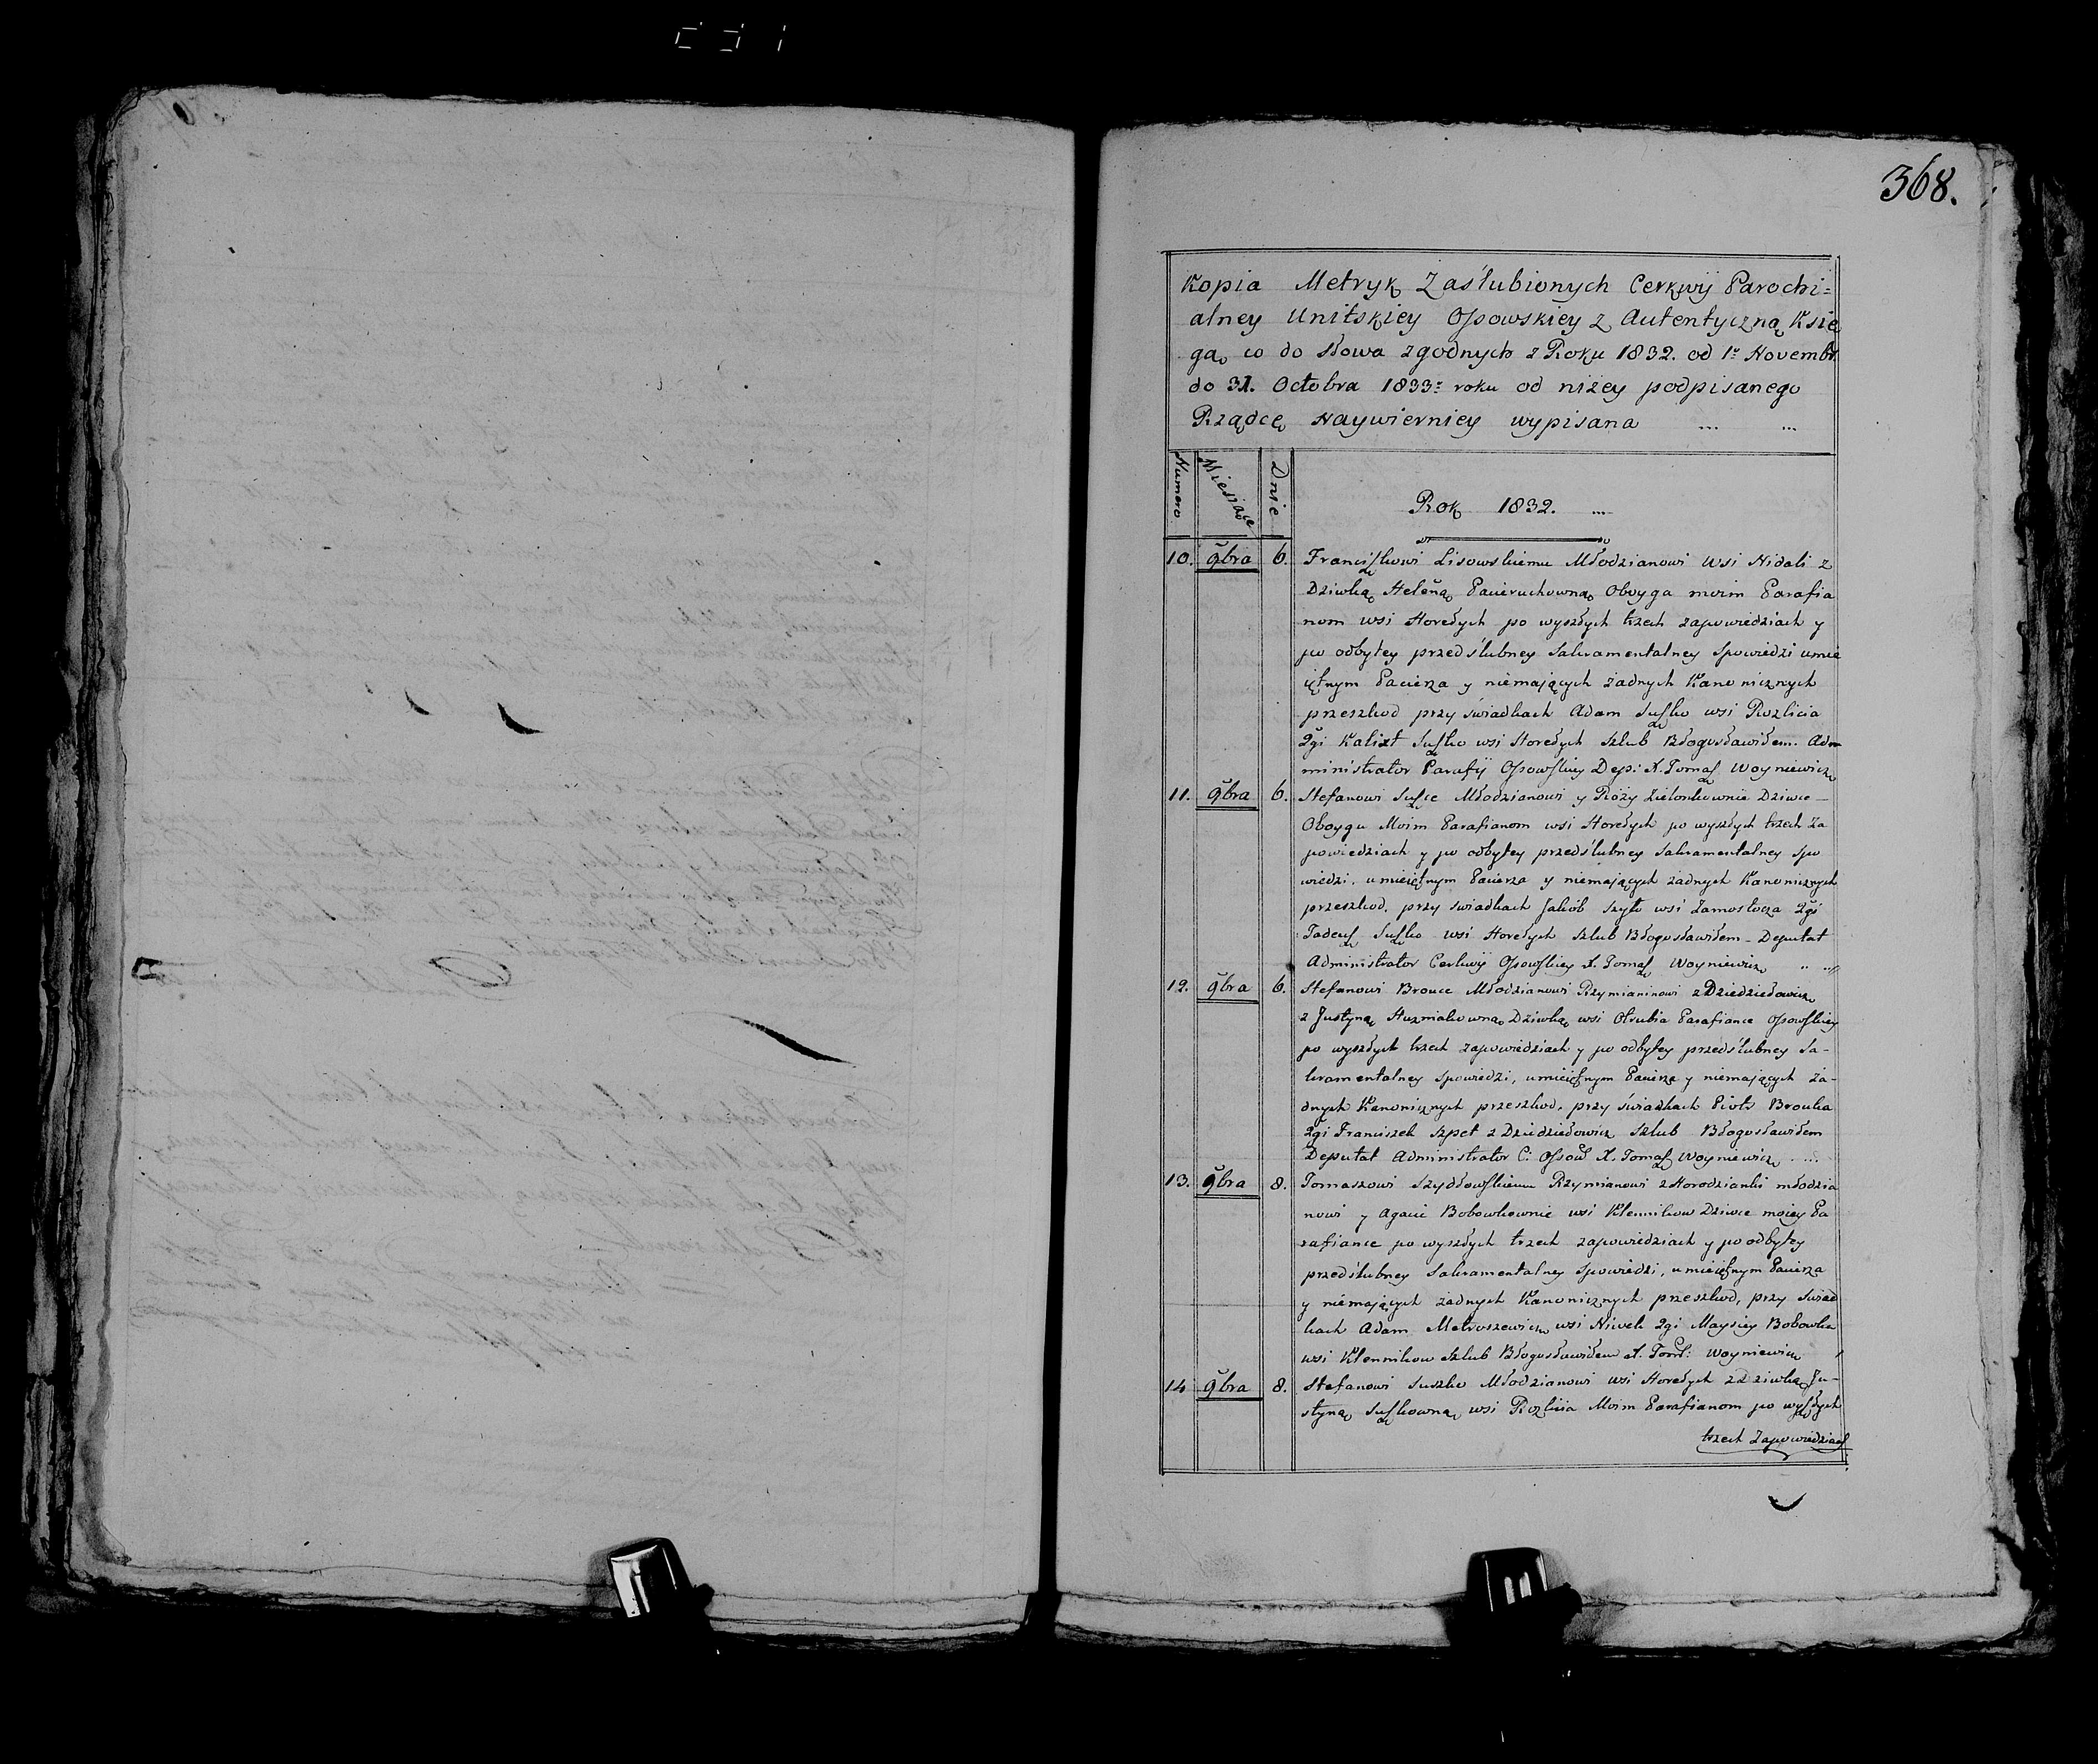 368.
Kopia Metryk Zaślubionych Cerkwij Parochi=
alney Unitskiey Ossowskiey z Autentyczną Księ
gą co do słowa zgodnych z Roku 1832. od 1º Novembr.
do 31. Octobra 1833º roku od niżey podpisanego
Rządcę Naywierniey wypisana ... ...
Numero. Miesiące Dnie
Rok 1832. ...
10. 9bra 6. Franciszkowi Lisowskiemu Młodzianowi wsi Nidali z
Dziwką Heleną Pacieruchowną Oboyga moim Parafia
nom wsi Horełych po wyszłych trzech zapowiedziach y
po odbytey przedślubney Sakramentalney Spowiedzi umie
iętnym Pacierza y niemających żadnych Kanonicznych
przeszkod przy świadkach Adam Suszko wsi Rozlicia
2gi Kalixt Suszko wsi Horełych szlub Błogosławiłem. Adm
ministrator Parafij Ossowskiey Dep: X. Tomasz Woyniewicz
11. 9bra 6. Stefanowi Suszce Młodzianowi y Róży Zielonkownie Dziwce
Oboygu Moim Parafianom wsi Horełych po wyszłych trzech za
powiedziach y po odbytey przedślubney Sakramentalney spo
wiedzi, umieiętnym Pacierza y niemających żadnych Kanonicznych
przeszkod, przy świadkach Jakób Szyło wsi Zamosłocza 2gi
Tadeusz Suszko wsi Horełych szlub Błogosławiłem - Deputat
Administrator Cerkwij Ossowskiey X. Tomasz Woyniewicz
12. 9bra 6. Stefanowi Brouce Młodzianowi Rzymianinowi z Dziedziełowicz
z Justyną Huzniakowną Dziwką wsi Otrubia Parafiance Ossowskiey
po wyszłych trzech zapowiedziach y po odbytey przedślubney Sa-
kramentalney spowiedzi, umieiętnym Pacierza y niemających ża-
dnych Kanonicznych przeszkod, przy świadkach Piotr Brouka
2gi Franciszek Szpet z Dziedziełowicz szlub Błogosławiłem
Deputat Administrator C: Ossow X. Tomasz Woyniewicz ...
13. 9bra 8. Tomaszowi Szydłowskiemu Rzymianowi z Horodzianki młodzia
nowi y Agacie Bobowkownie wsi Klennikow Dziwce moiey Pa
rafiance po wyszłych trzech zapowiedziach y po odbytey
przedślubney Sakramentalney Spowiedzi, umieiętnym Pacierza
y niemających żadnych Kanonicznych przeszkod, przy świad
kach Adam Matruszewicz wsi Niwek 2gi Maysiey Bobowka
wsi Klennikow szlub Błogosławiłem X. Tom: Woyniewicz
14 9bra 8. Stefanowi Suszko Młodzianowi wsi Horełych z Dziwką Ju-
styną Suszkowną wsi Rozlicia Moim Parafianom po wyszłych
trzech Zapowiedziach